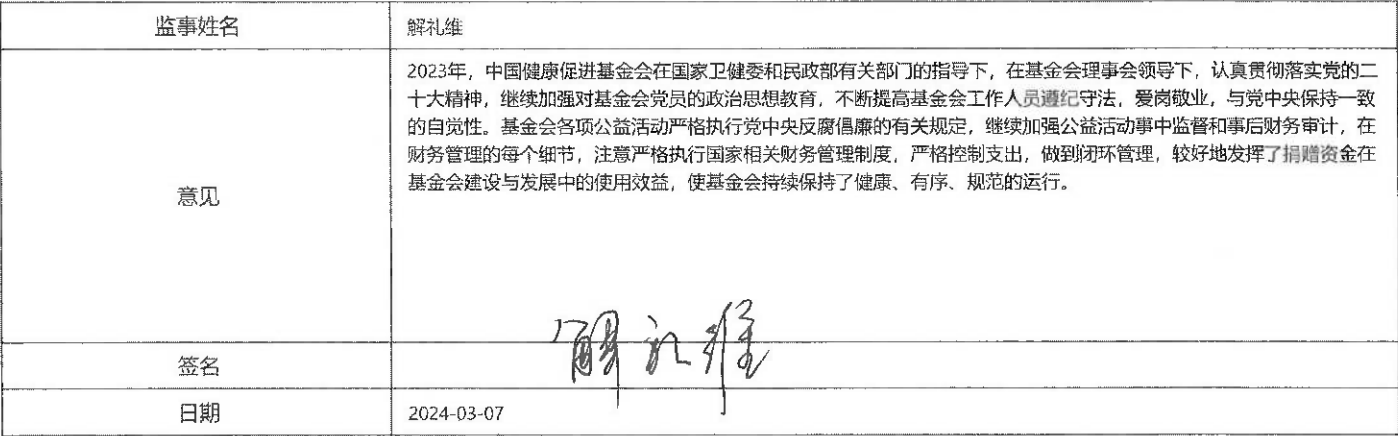 监事姓名
解礼维
意见
2023年，中国健康促进基金会在国家卫健委和民政部有关部门的指导下，在基金会理事会领导下，认真贯彻落实党的二
十大精神，继续加强对基金会党员的政治思想教育，不断提高基金会工作人员遵纪守法，爱岗敬业，与党中央保持一致
的自觉性。基金会各项公益活动严格执行党中央反腐倡廉的有关规定，继续加强公益活动事中监督和事后财务审计，在
财务管理的每个细节，注意严格执行国家相关财务管理制度，严格控制支出，做到闭环管理，较好地发挥了捐赠资金在
基金会建设与发展中的使用效益，使基金会持续保持了健康、有序、规范的运行。
签名
解礼维
日期
2024-03-07